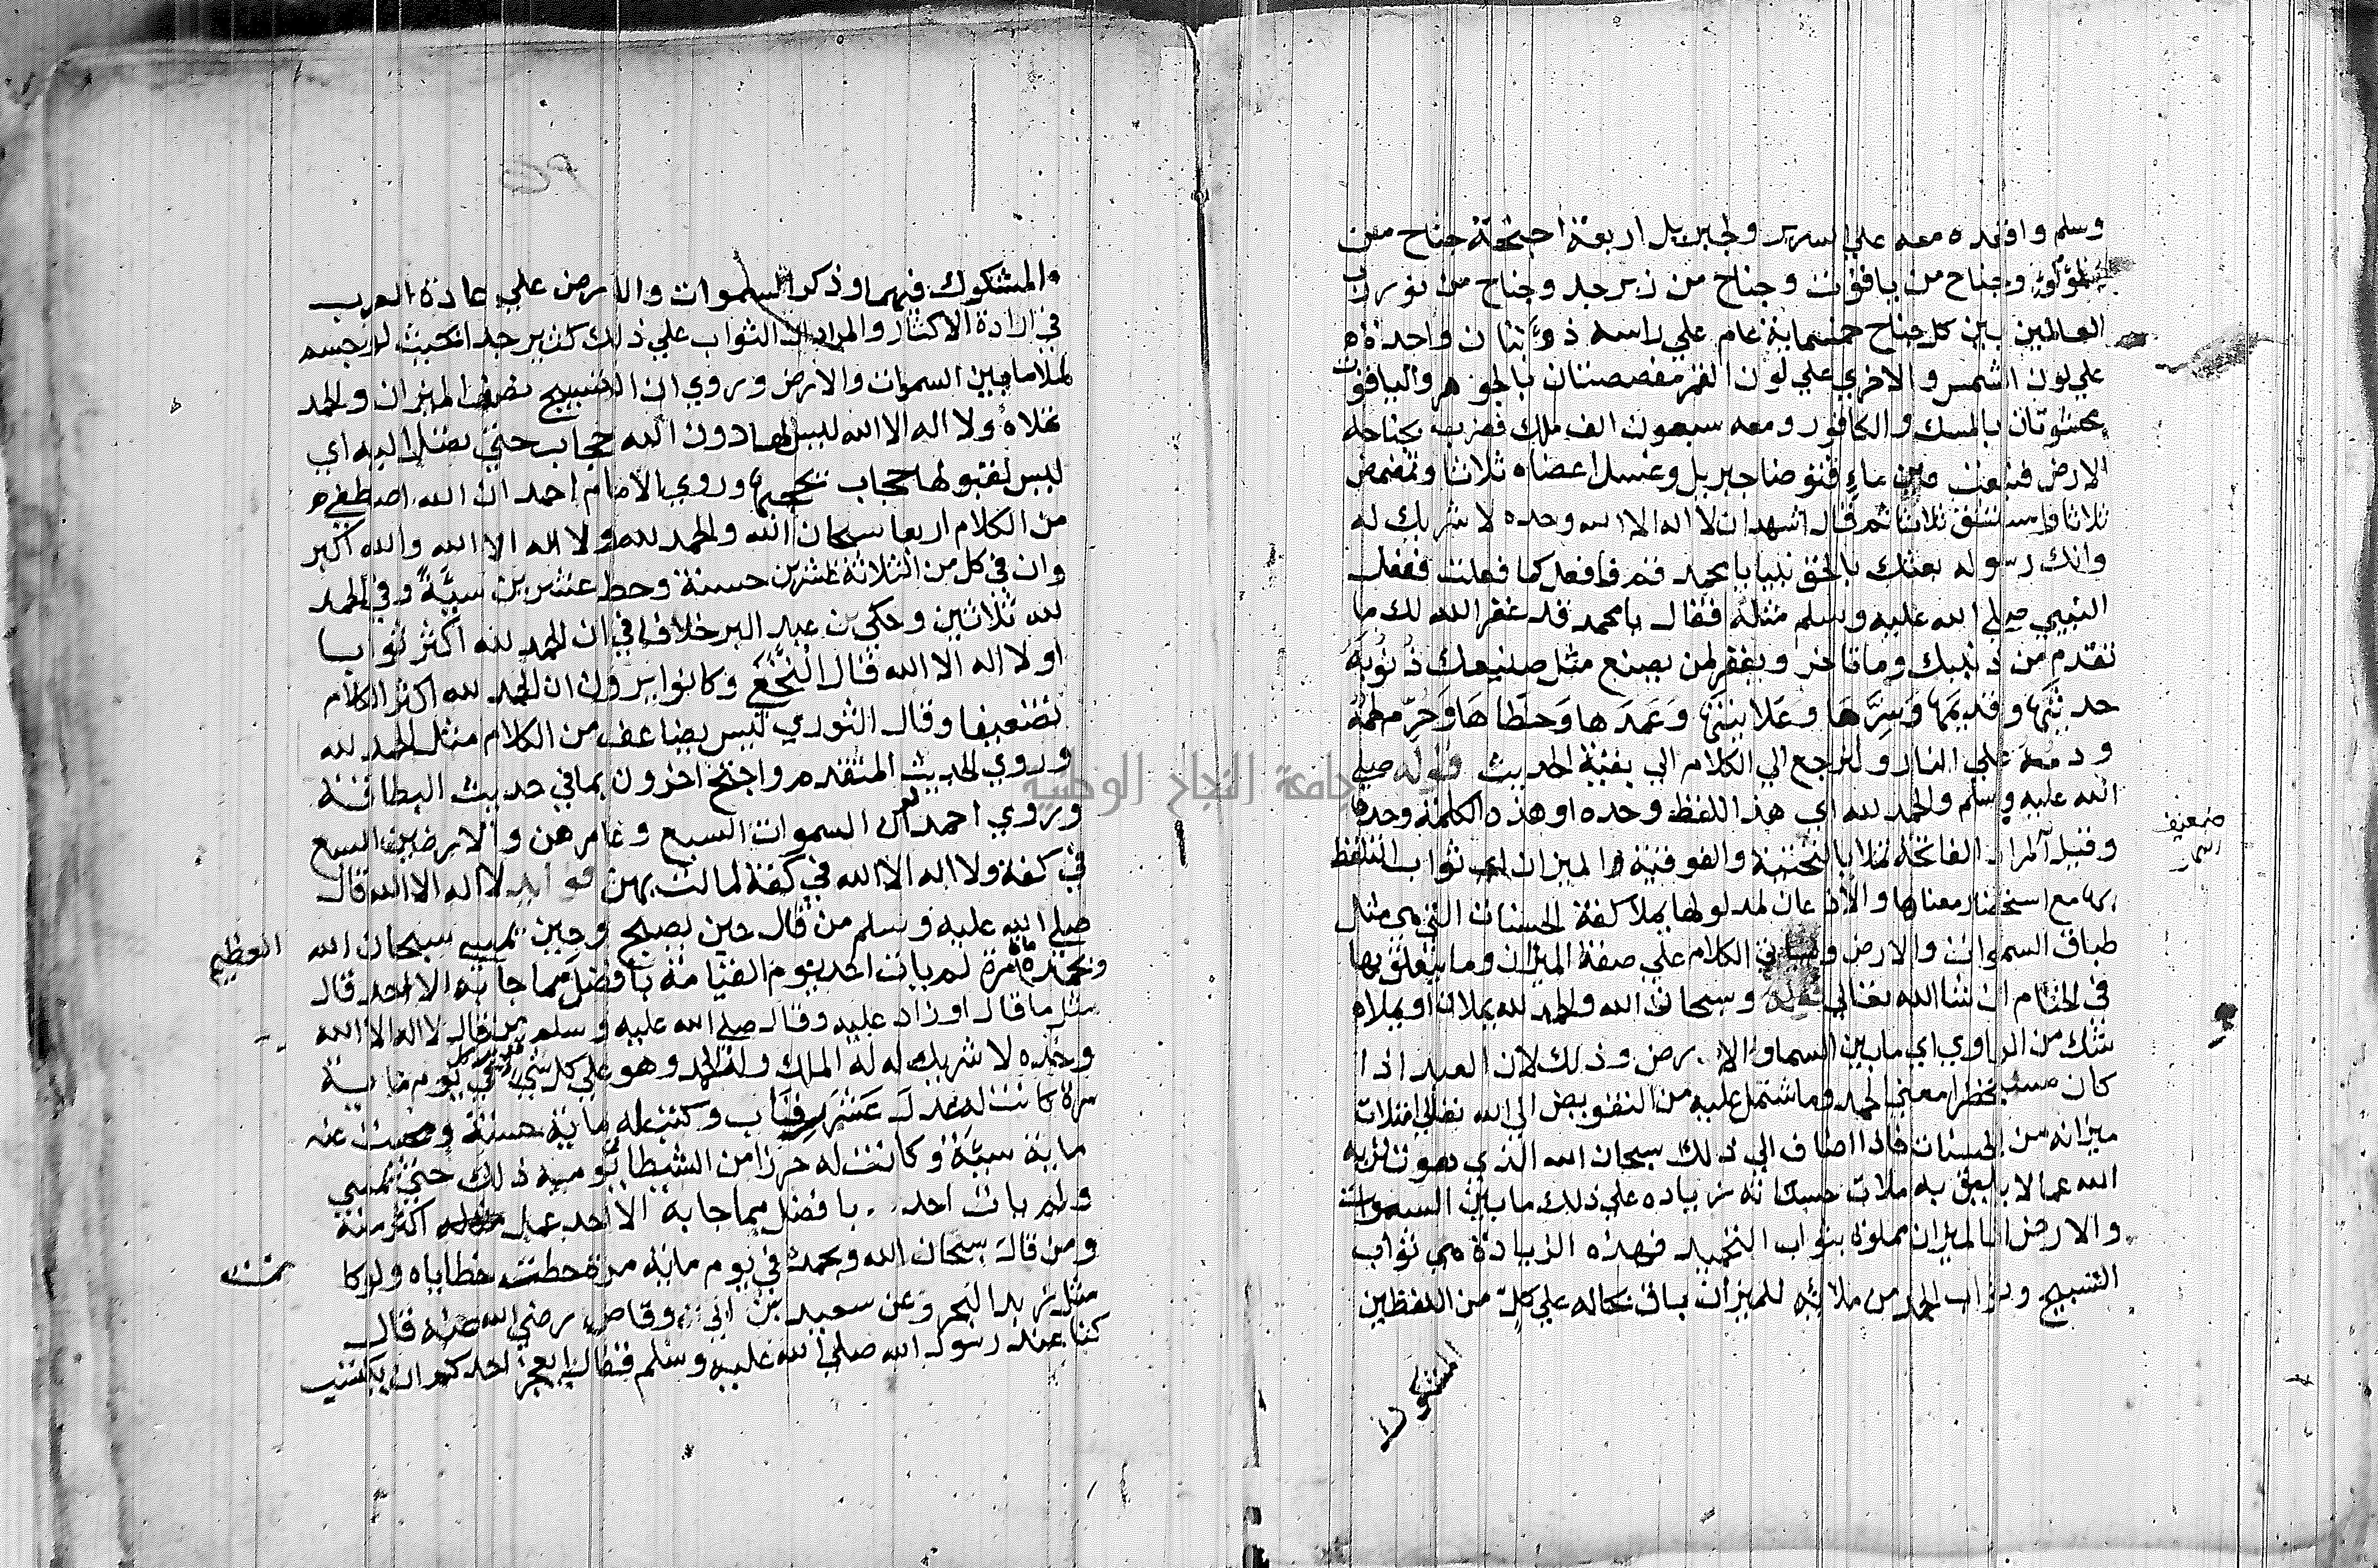 وسلم واقعده معه علي السرير ولجبريل اربعة اجنحة جناح من
لؤلؤ وجناح من ياقوت وجناح من زبرجد وجناح من نور رب
العالمين بين كل جناح خمسماية عام علي راسه ذؤابتان واحدة
علي لون الشمس والاخري علي لون القمر مفصصتان بالجوهر والياقوت
محشوتان بالمسك والكافور ومعه سبعون الف ملك فضرب بجناحه
الارض فنبعت عين ماء فتوضا جبريل وغسل اعضاه ثلاثا وتمضمض
ثلاثا واستنشق ثلاثا ثم قال اشهد ان لا اله الا الله وحده لا شريك له
وانك رسوله بعثك بالحق نبيا يا محمد قم فافعل كما فعلت ففعل
النبي صلي الله عليه وسلم مثله فقال يا محمد قد غفر الله لك ما
تقدم من ذنبك وما تاخر ويغفر لمن يصنع مثل صنيعك ذنوبه
حديثها وقديمها وسرها وعلانيتها وعمدها وخطاها وحرم لحمه
ودمه علي النار ولنرجع الي الكلام الي بقية الحديث قوله صلي
الله عليه وسلم والحمد لله اي هذا اللفظ وحده او هذه الكلمة وحدها
وقيل المراد الفاتحة تملا بالتحتية والفوقية الميزان اي ثواب التلفظ
بها مع استحضار معناها والاذعان لمدلولها يملا كفة الحسنات التي هي مثل
طباق السموات والارض وسياتي الكلام علي صفة الميزان وما يتعلق بها
في الختام ان شا الله تعالي قوله وسبحان الله والحمد لله يملان او يملاه
شك من الراوي اي ما بين السما والارض وذلك لان العبد اذا
كان مستحضرا معني الحمد وما اشتمل عليه من التفويض الي الله تعالي امتلات
ميزانه من الحسنات فاذا اضاف الي ذلك سبحان الله الذي هو تنزيه
الله عما لا يليق به ملات حسناته زياده علي ذلك ما بين السموات
والارض اذ الميزان مملوة بثواب التحميد فهذه الزيادة هي ثواب
التسبيح وثواب الحمد من ملائه للميزان باق بحاله علي كل من اللفظين
المشكوك
ضعيف
المشكوك فيهما وذكر السموات والارض علي عادة العرب
في ارادة الاكثار والمراد ان الثواب علي ذلك كثير جدا بحيث لو جسم
لملا ما بين السموات والارض وروي ان التسبيح نصف الميزان والحمد
تملاه ولا اله الا الله ليس لها دون الله حجاب حتي تصل اليه اي
ليس لقبولها حجاب يحجبها وروي الامام احمد ان الله اصطفي
من الكلام اربعا سبحان الله والحمد لله ولا اله الا الله والله اكبر
وان في كل من الثلاثة عشرين حسنة وحط عشرين سيئة وفي الحمد
لله ثلاثين وحكي بن عبد البر خلافا في ان الحمد لله اكثر ثوابا
او لا اله الا الله قال النخعي وكانوا يرون ان الحمد لله اكثر الكلام
تضعيفا وقال الثوري ليس يضاعف من الكلام مثل الحمد لله
وروي الحديث المتقدم واحتج اخرون بما في حديث البطاقة
وروي احمد لو ان السموات السبع وعامرهن والارضين السبع
في كفة ولا اله الا الله في كفة لمالت بهن فوايد لا اله الا الله قال
صلي الله عليه وسلم من قال حين يصبح وحين يمسي سبحان الله العظيم
وبحمده ماة مرة لم يات احد يوم القيامة بافضل مما جا به الا احد قال
مثل ما قال او زاد عليه وقال صلي الله عليه وسلم من قال لا اله الا الله
وحده لا شريك له له الملك وله الحمد وهو علي كل شي قدير في يوم ماية
مرة كانت له عدل عشر رقاب وكتب له ماية حسنة ومحيت عنه
ماية سيئة وكانت له حرزا من الشيطان يومه ذلك حتي يمسي
ولم يات احد بافضل مما جا به الا احد عمل اكثر منه
ومن قال سبحان الله وبحمده في يوم ماية مرة حطت خطاياه ولو كانت
مثل زبد البحر وعن سعيد بن ابي وقاص رضي الله عنه قال
كنا عند رسول الله صلي الله عليه وسلم فقال ايعجز احدكم ان يكتسب
جامعة النجاح الوطنية